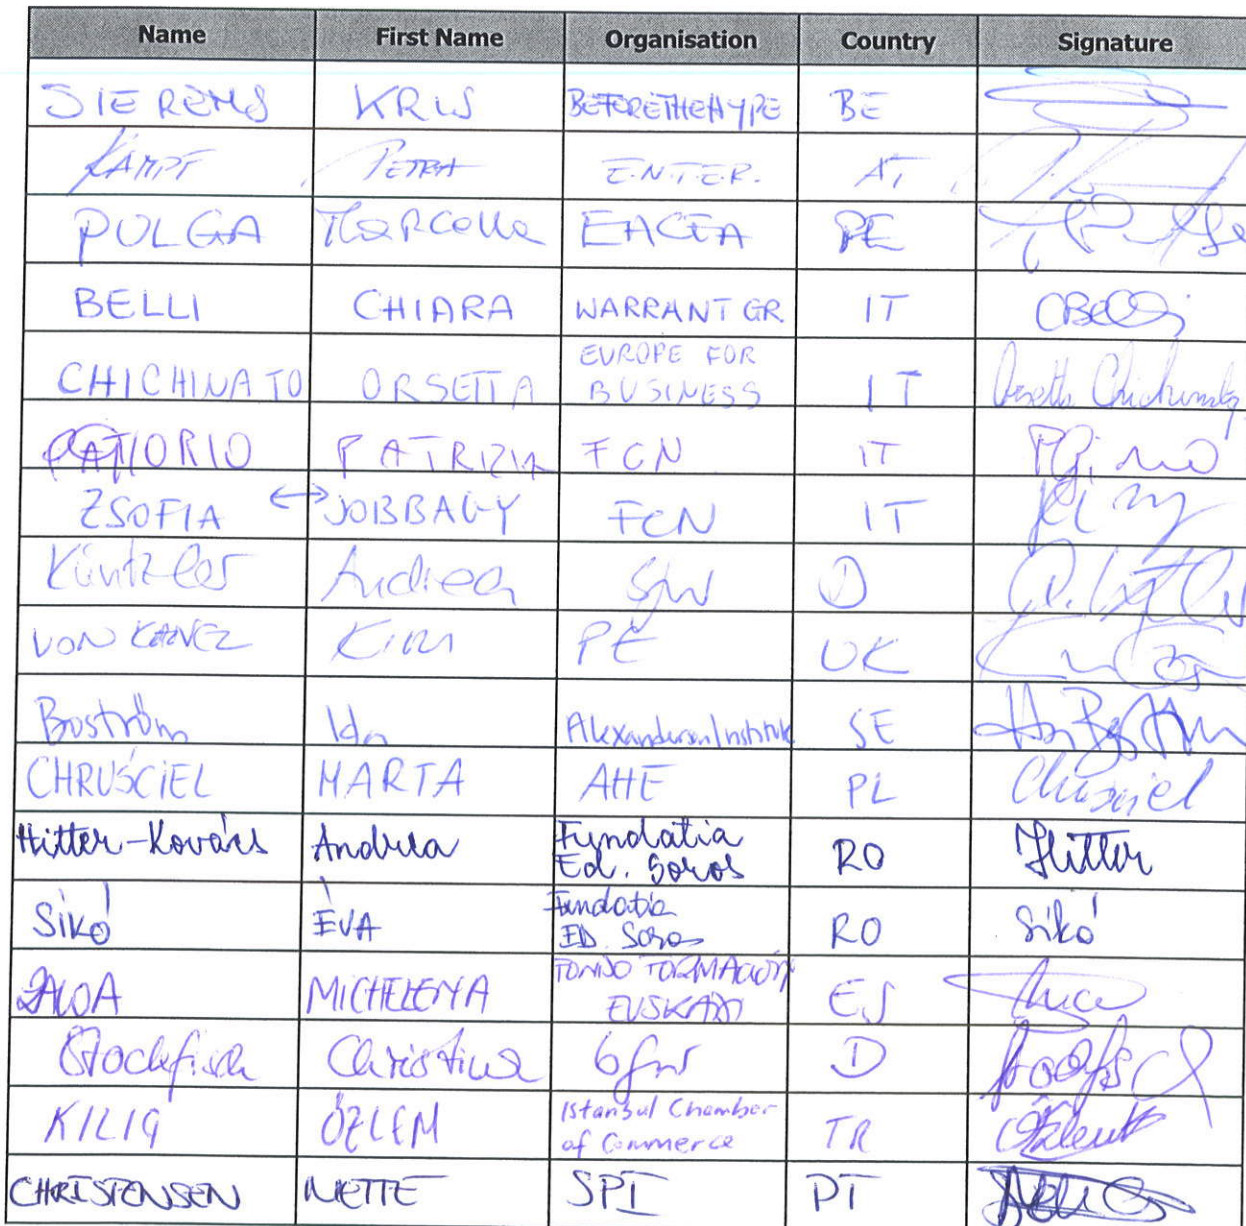 Name First Name Organisation Country Signature
SIEREMS KRIS BEFORETHEHYPE BE
KAMPF PETRA E.N.T.E.R. AT
PULGA Marcella EACEA BE
BELLI CHIARA WARRANT GR. IT CBelli
EUROPE FOR
CHICHINATO ORSETTA BUSINESS IT Orsetta Chichinato
PATRIZIA FCN IT
ZSOFIA ↔ JOBBAGY FCN IT
Küntzler Andrea D
VON KANEL Kim PE UK
Boström Ida Alexanderson Institute SE
CHRUŚCIEL MARTA AHE PL Chruściel
Hitter-Kovács Andrea Fundatia RO Hitter
Ed. Soros
Sikó ÉVA Fundatia RO Sikó
ED. Soros
MICHELENA FONDO FORMACIÓN ES
EUSKADI
Stockfisch Christina bfw D
KILIÇ ÖZLEM Istanbul Chamber TR
of Commerce
CHRISTENSEN METTE SPI PT